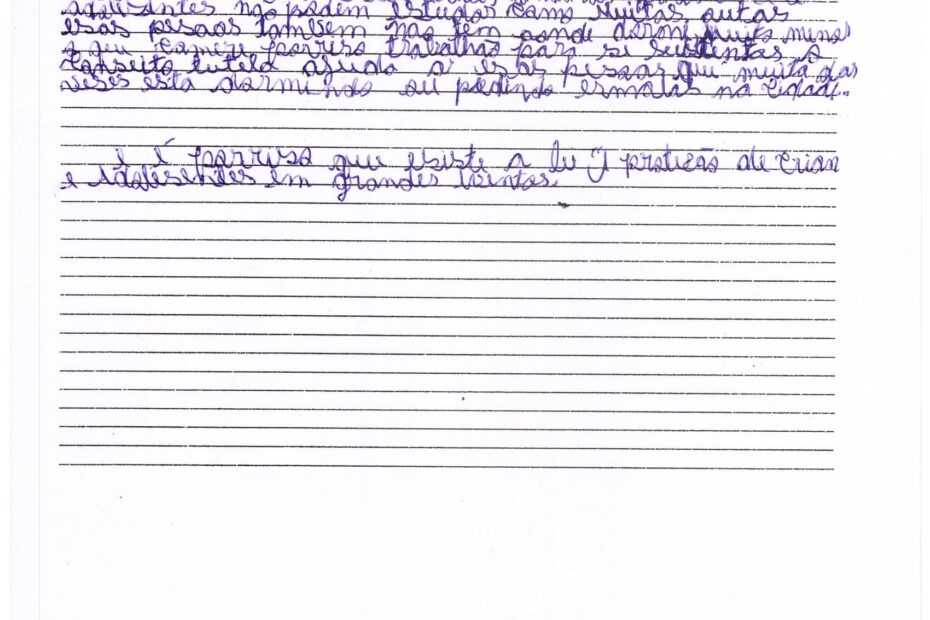 adolesentes não podem estudar como muitas outas
esas pesoas tambem não tem aonde dormi muito menos
o que comere parriso trabalhão para si sustentas o
conseito tutela ajuda a esas pesoas que muita das
veses esta dormindo ou pedindo esmolas na cidade.
e é parriso que esiste a lei proticão de Crian
e Adolesentes em grandes ventos.